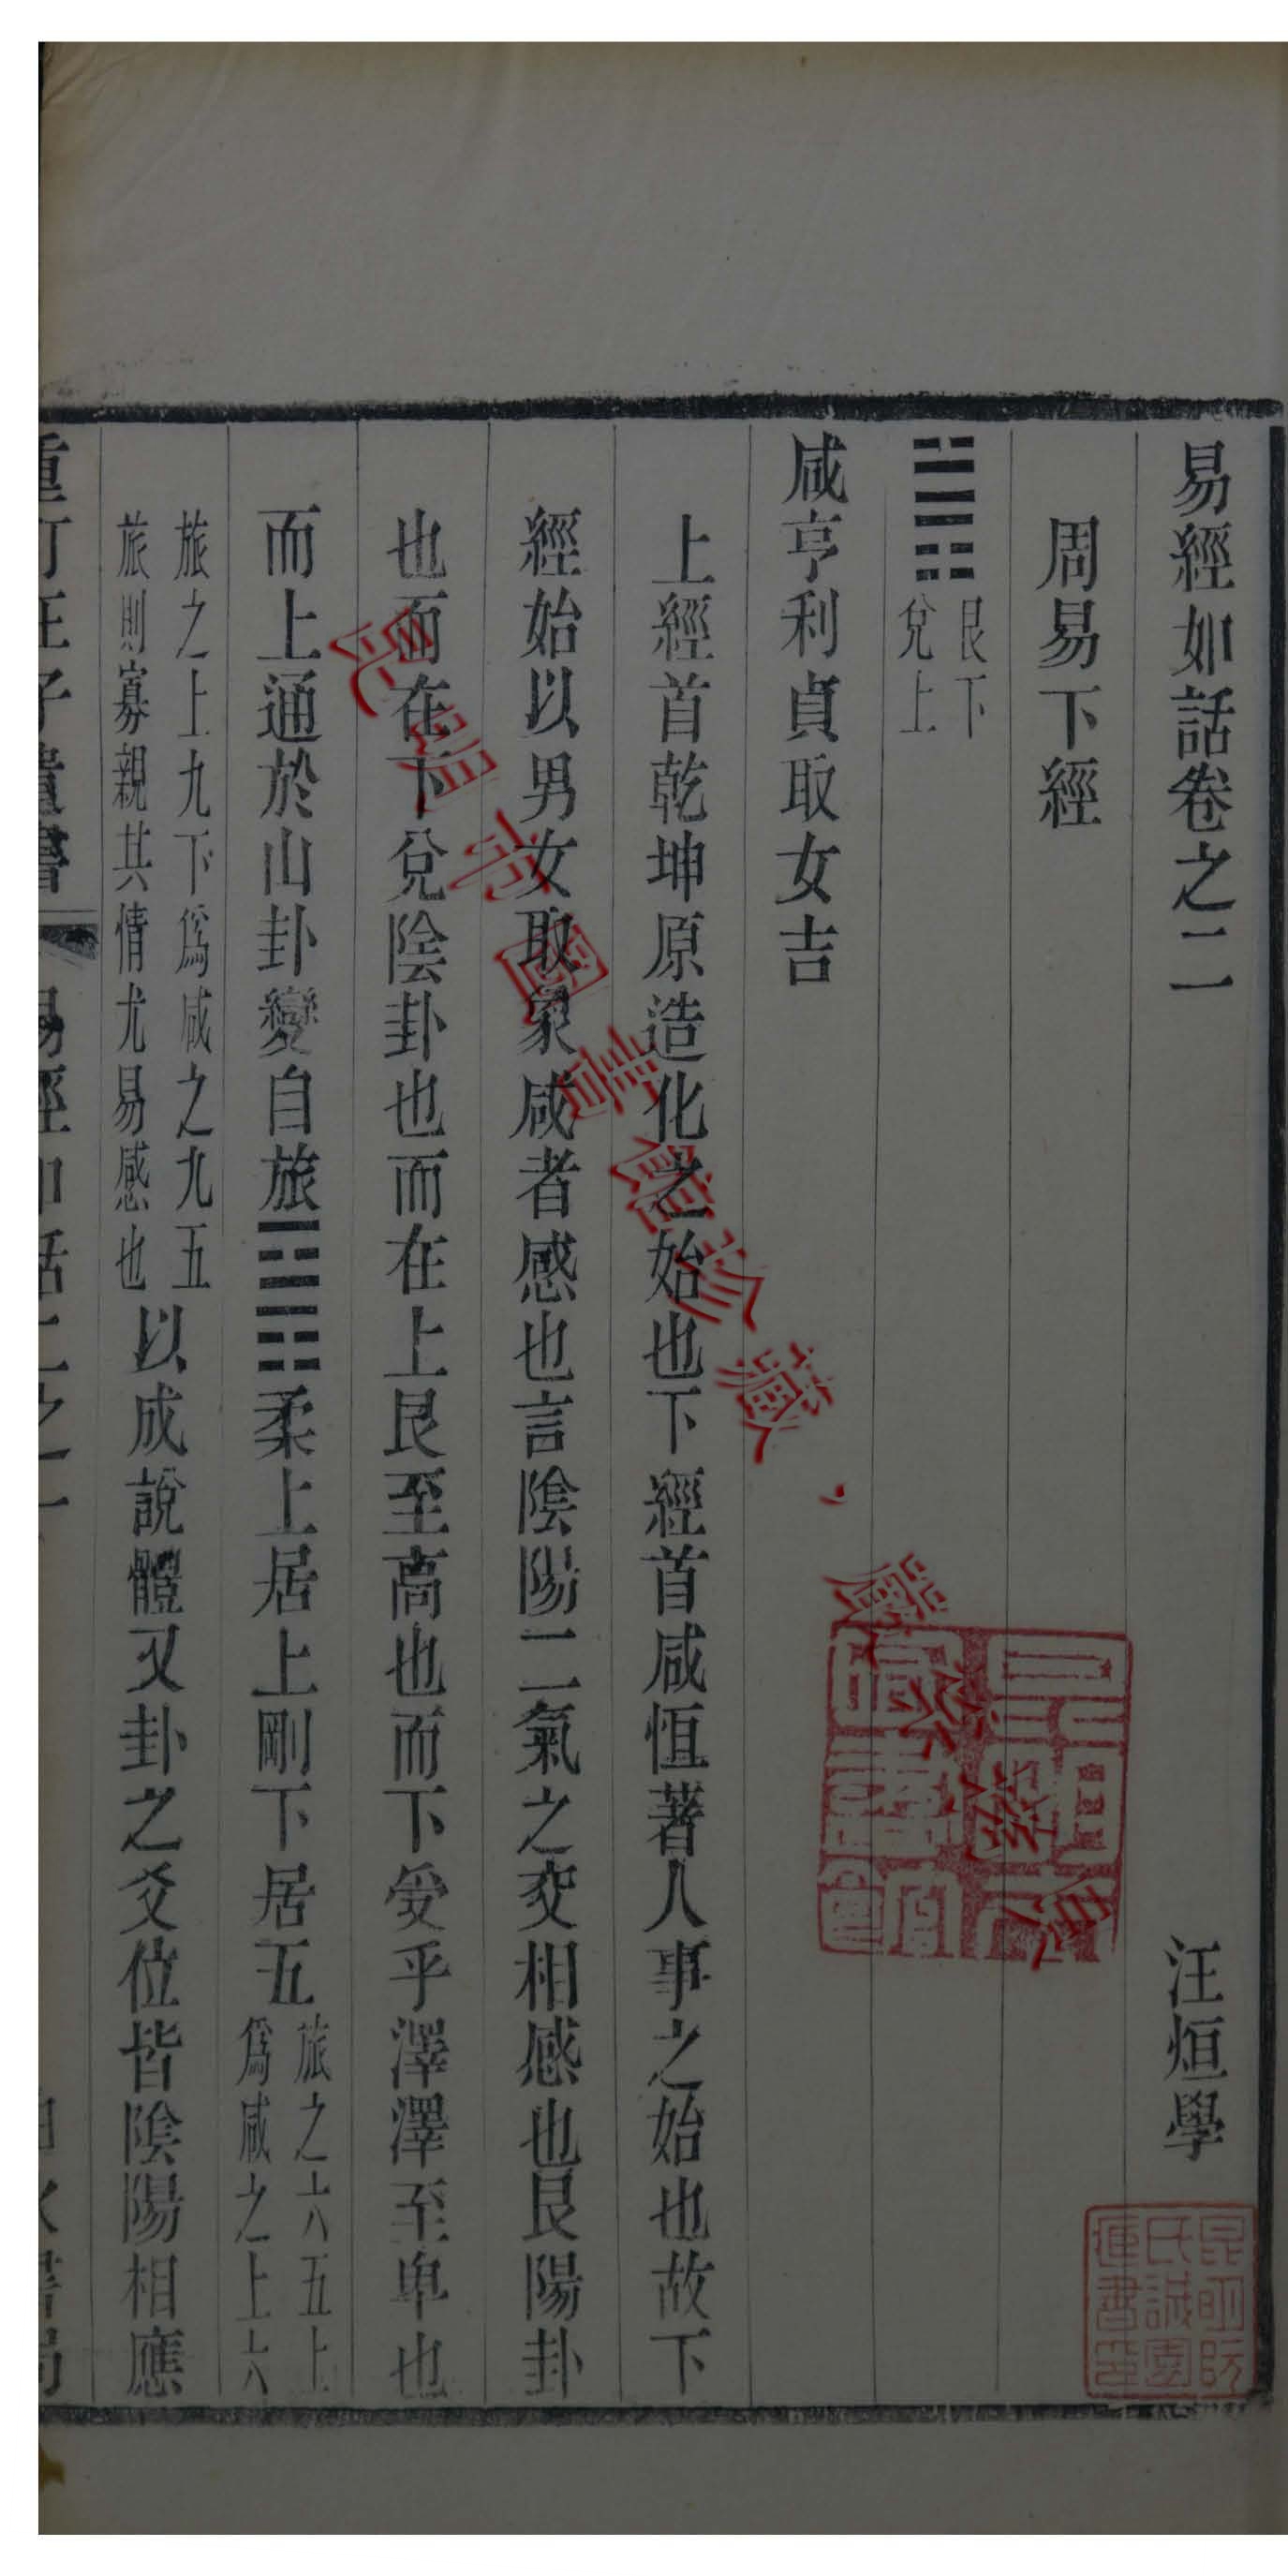 易經如話卷之二　汪烜學
周易下經
䷞艮下兌上
咸亨利貞取女吉
上經首乾坤原造化之始也下經首咸恒著人事之始也故下
經始以男女取象咸者感也言陰陽二氣之交相感也艮陽卦
也而在下兌陰卦也而在上艮至高也而下受乎澤澤至卑也
而上通於山卦變自旅䷷柔上居上剛下居五旅之六五上爲咸之上六
旅之上九下爲咸之九五旅則寡親其情尤易感也以成說體又卦之爻位皆陰陽相應
昆明市圖書館珍藏，嚴禁盜版
昆明防氏誠園運書營